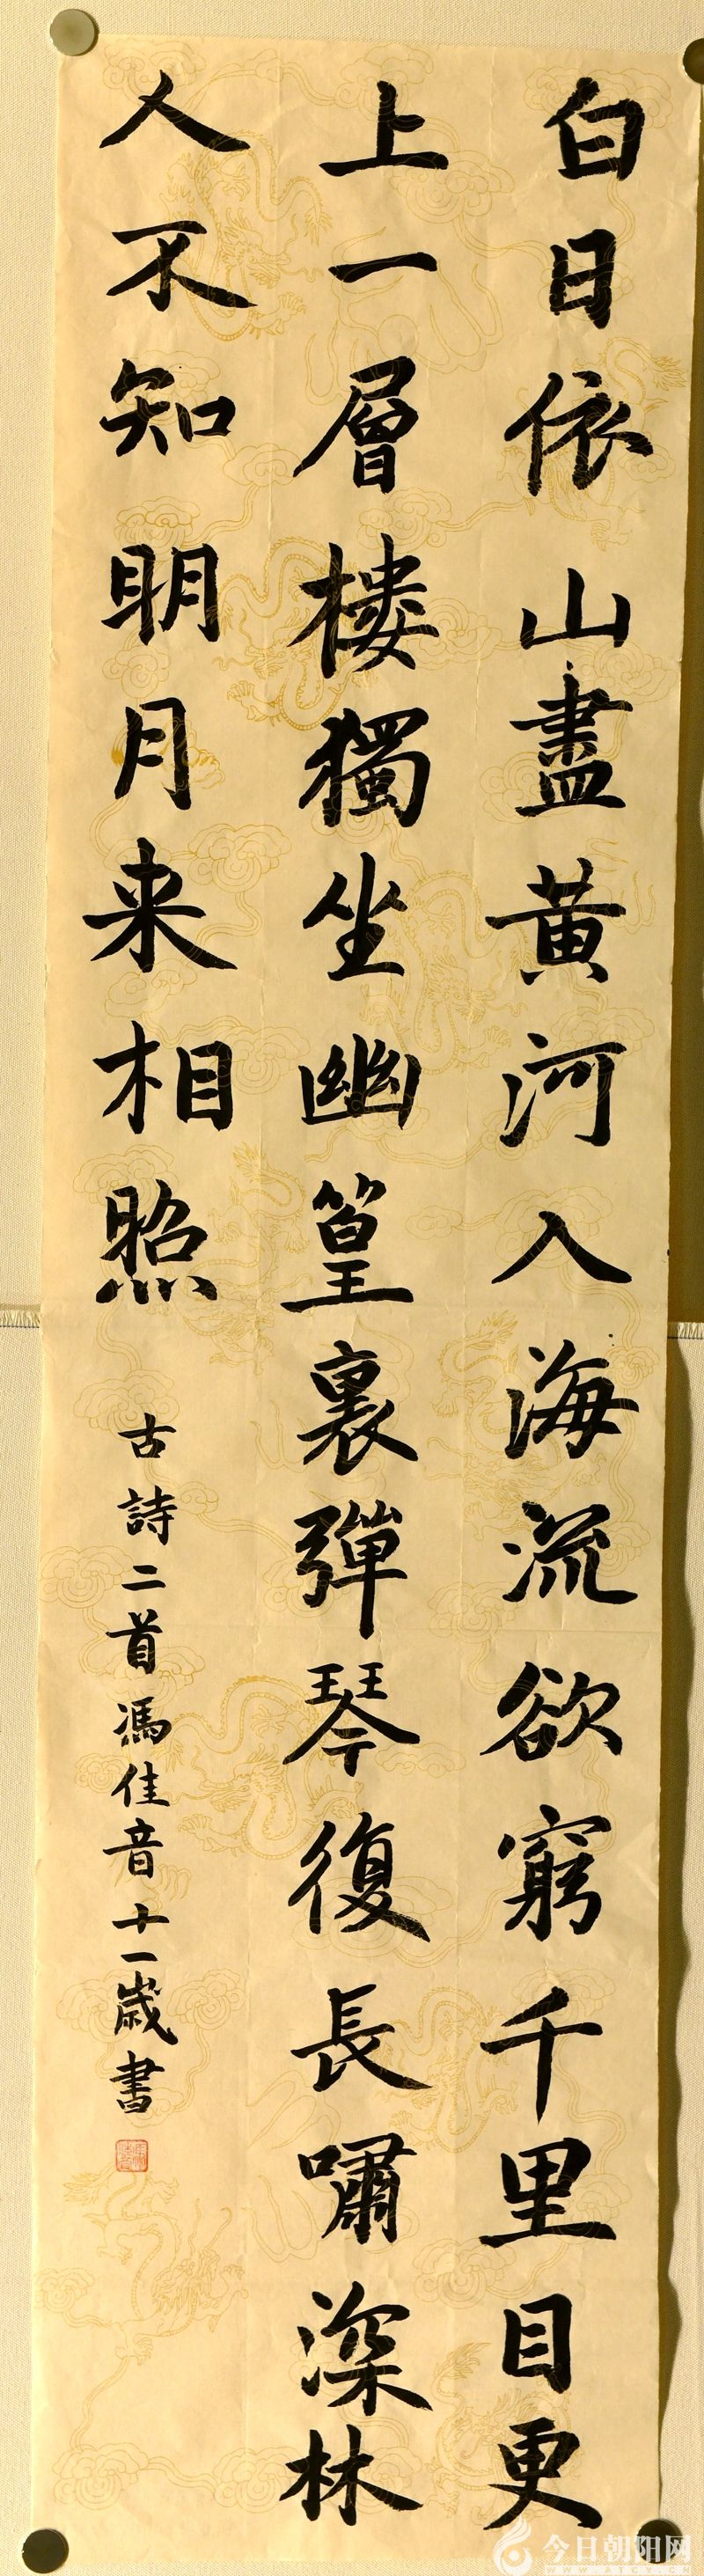 白日依山盡黄河入海流欲窮千里目更
上一層楼獨坐幽篁裏彈琴復長嘯深林
人不知明月来相照
古詩二首馮佳音十一歲書
今日朝阳网